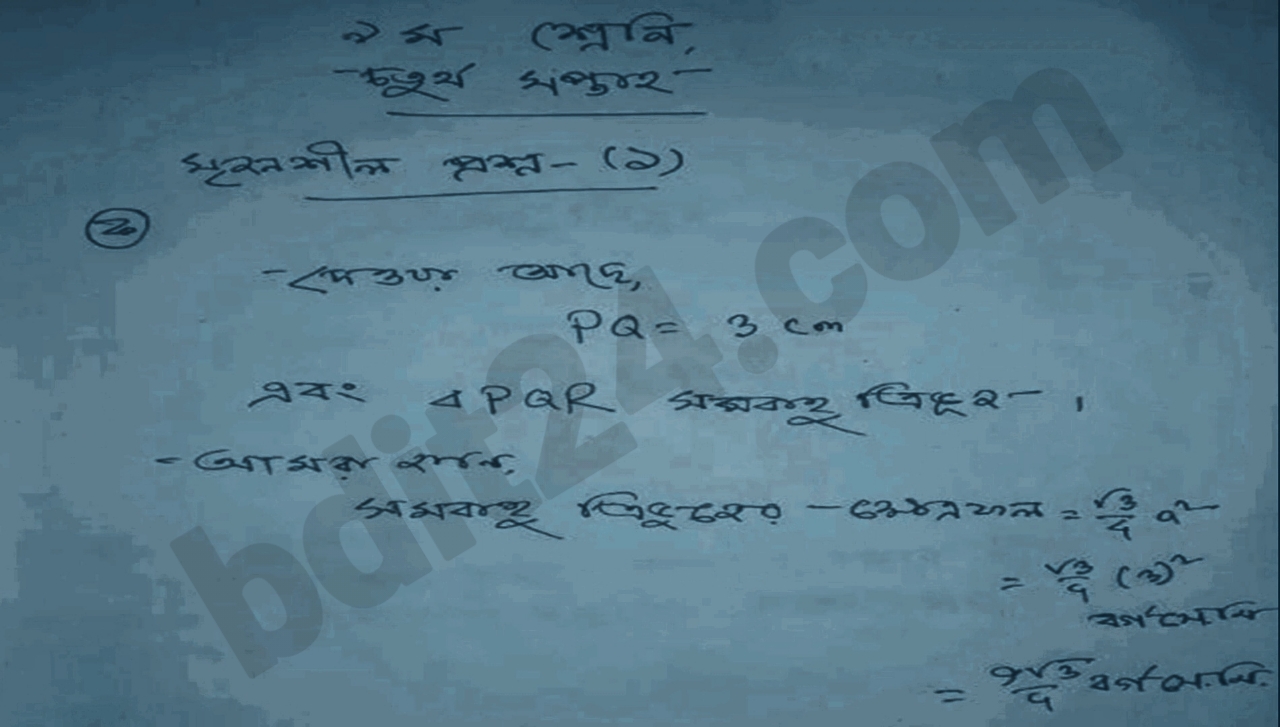 ৯ম শ্রেনি,
চতুর্থ সপ্তাহ
সৃজনশীল প্রশ্ন- (১)
দেওয়া আছে,
PQ = 3 cm
এবং ΔPQR সমবাহু ত্রিভুজ ।
আমরা জানি,
সমবাহু ত্রিভুজের ক্ষেত্রফল = √3/4 a²
= √3/4 (3)²
বর্গ সেমি
= 9√3/4 বর্গ সে.মি.
bdit24.com